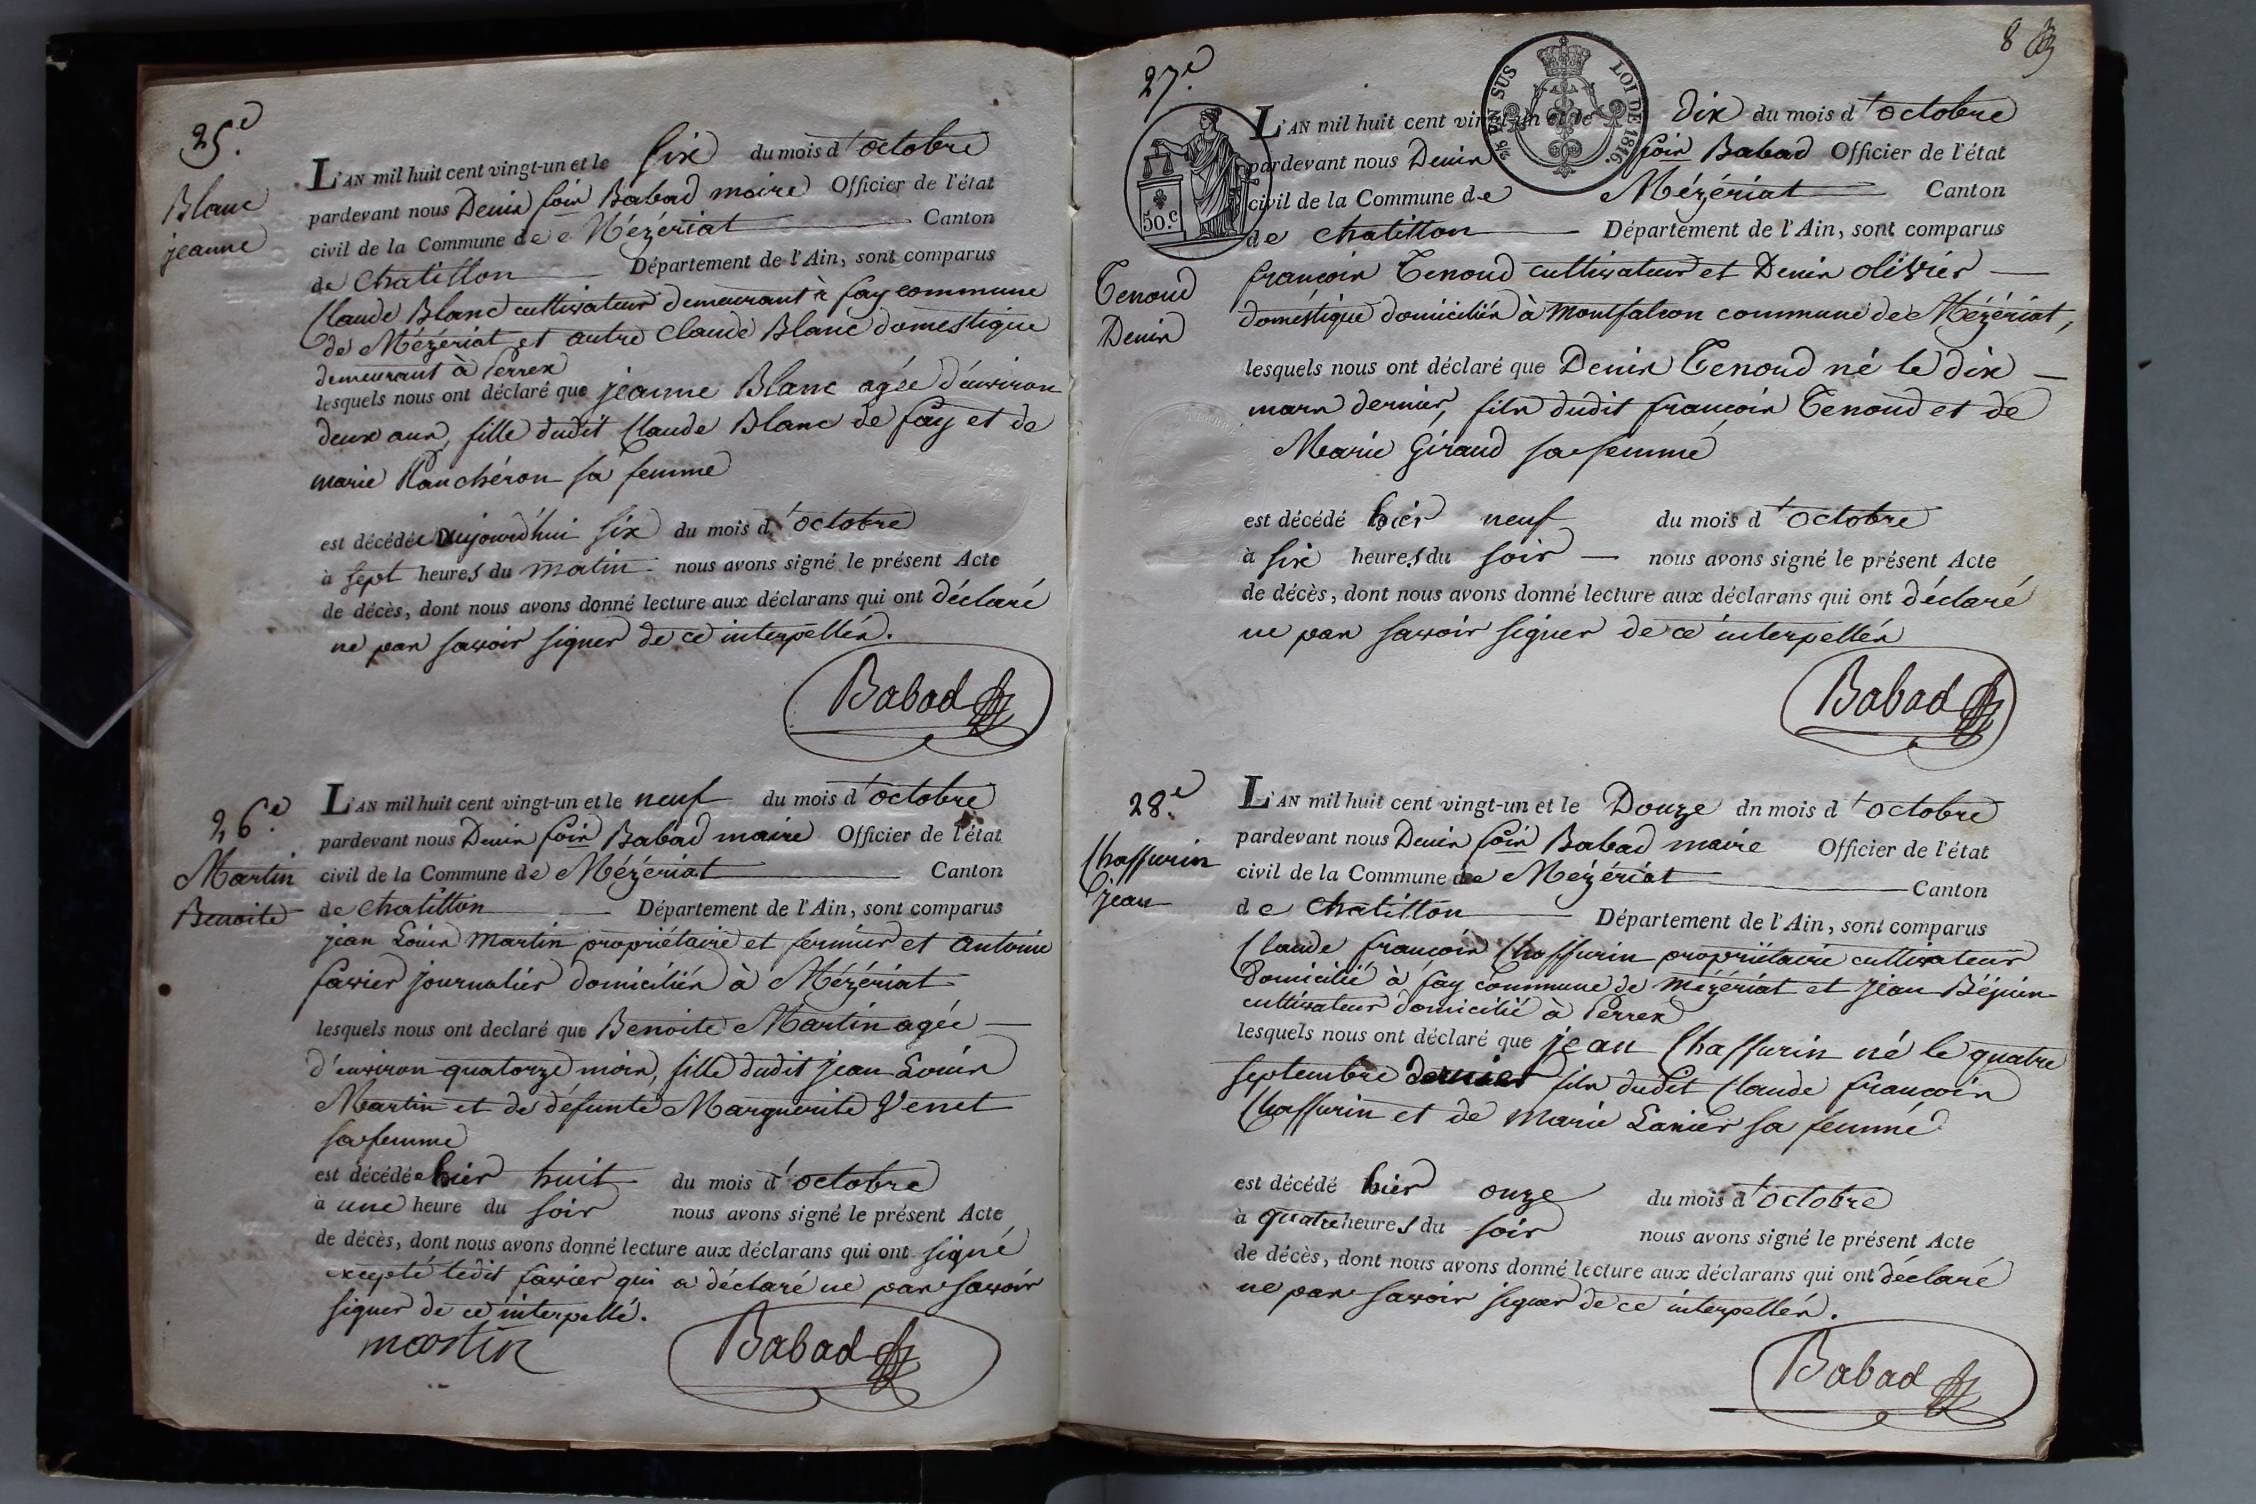 25.e
Blanc
jeanne
L'AN mil huit cent vingt-un et le six du mois d'octobre
pardevant nous Denis foix Babad maire Officier de l'état
civil de la Commune de Mézériat Canton
de chatillon Département de l'Ain, sont comparus
Claude Blanc cultivateur demeurant à fay commune
de Mézériat et autre Claude Blanc domestique
demeurant à Perrex
lesquels nous ont déclaré que jeanne Blanc agée d'environ
deux ans, fille dudit Claude Blanc de fay et de
marie Planchéron sa femme
est décédée aujourd'hui six du mois d'octobre
à sept heures du matin nous avons signé le présent Acte
de décès, dont nous avons donné lecture aux déclarans qui ont déclaré
ne pas savoir signer de ce interpellés.
Babad
26.e
Martin
Benoite
L'AN mil huit cent vingt-un et le neuf du mois d'octobre
pardevant nous Denis foix Babad maire Officier de l'état
civil de la Commune de Mézériat Canton
de chatillon Département de l'Ain, sont comparus
jean Louis Martin propriétaire et fermier et antoine
favier journalier domiciliés à Mézériat
lesquels nous ont declaré que Benoite Martin agée
d'environ quatorze mois, fille dudit jean Louis
Martin et de défunte Marguerite Venet
sa femme
est décédée hier huit du mois d'octobre
à une heure du soir nous avons signé le présent Acte
de décès, dont nous avons donné lecture aux déclarans qui ont signé
excepté ledit favier qui a déclaré ne pas savoir
signer de ce interpellé.
martin
Babad
8
27.e
5/6 EN SUS
LOI DE 1816.
50.c
Tenoud
Denis
L'AN mil huit cent vingt-un et le dix du mois d'octobre
pardevant nous Denis foix Babad Officier de l'état
civil de la Commune de Mézériat Canton
de chatillon Département de l'Ain, sont comparus
françois Tenoud cultivateur et Denis olivier
doméstique domiciliés à Montfalcon commune de Mézériat,
lesquels nous ont déclaré que Denis Tenoud né le dix
mars dernier, fils dudit françois Tenoud et de
Marie Giraud sa femme
est décédé hier neuf du mois d'octobre
à six heures du soir nous avons signé le présent Acte
de décès, dont nous avons donné lecture aux déclarans qui ont déclaré
ne pas savoir signer de ce interpellés
Babad
28.e
Chaffurin
jean
L'AN mil huit cent vingt-un et le Douze dn mois d'octobre
pardevant nous Denis foix Babad maire Officier de l'état
civil de la Commune de Mézériat Canton
de chatillon Département de l'Ain, sont comparus
Claude françois Chaffurin propriétaire cultivateur
domicilié à fay commune de mézériat et jean Béjuin
cultivateur domicilié à Perrex
lesquels nous ont déclaré que jean Chaffurin né le quatre
septembre dernier fils dudit Claude françois
Chaffurin et de Marie Lanier sa femme
est décédé hier onze du mois d'octobre
à quatre heures du soir nous avons signé le présent Acte
de décès, dont nous avons donné lecture aux déclarans qui ont déclaré
ne pas savoir signer de ce interpellés.
Babad